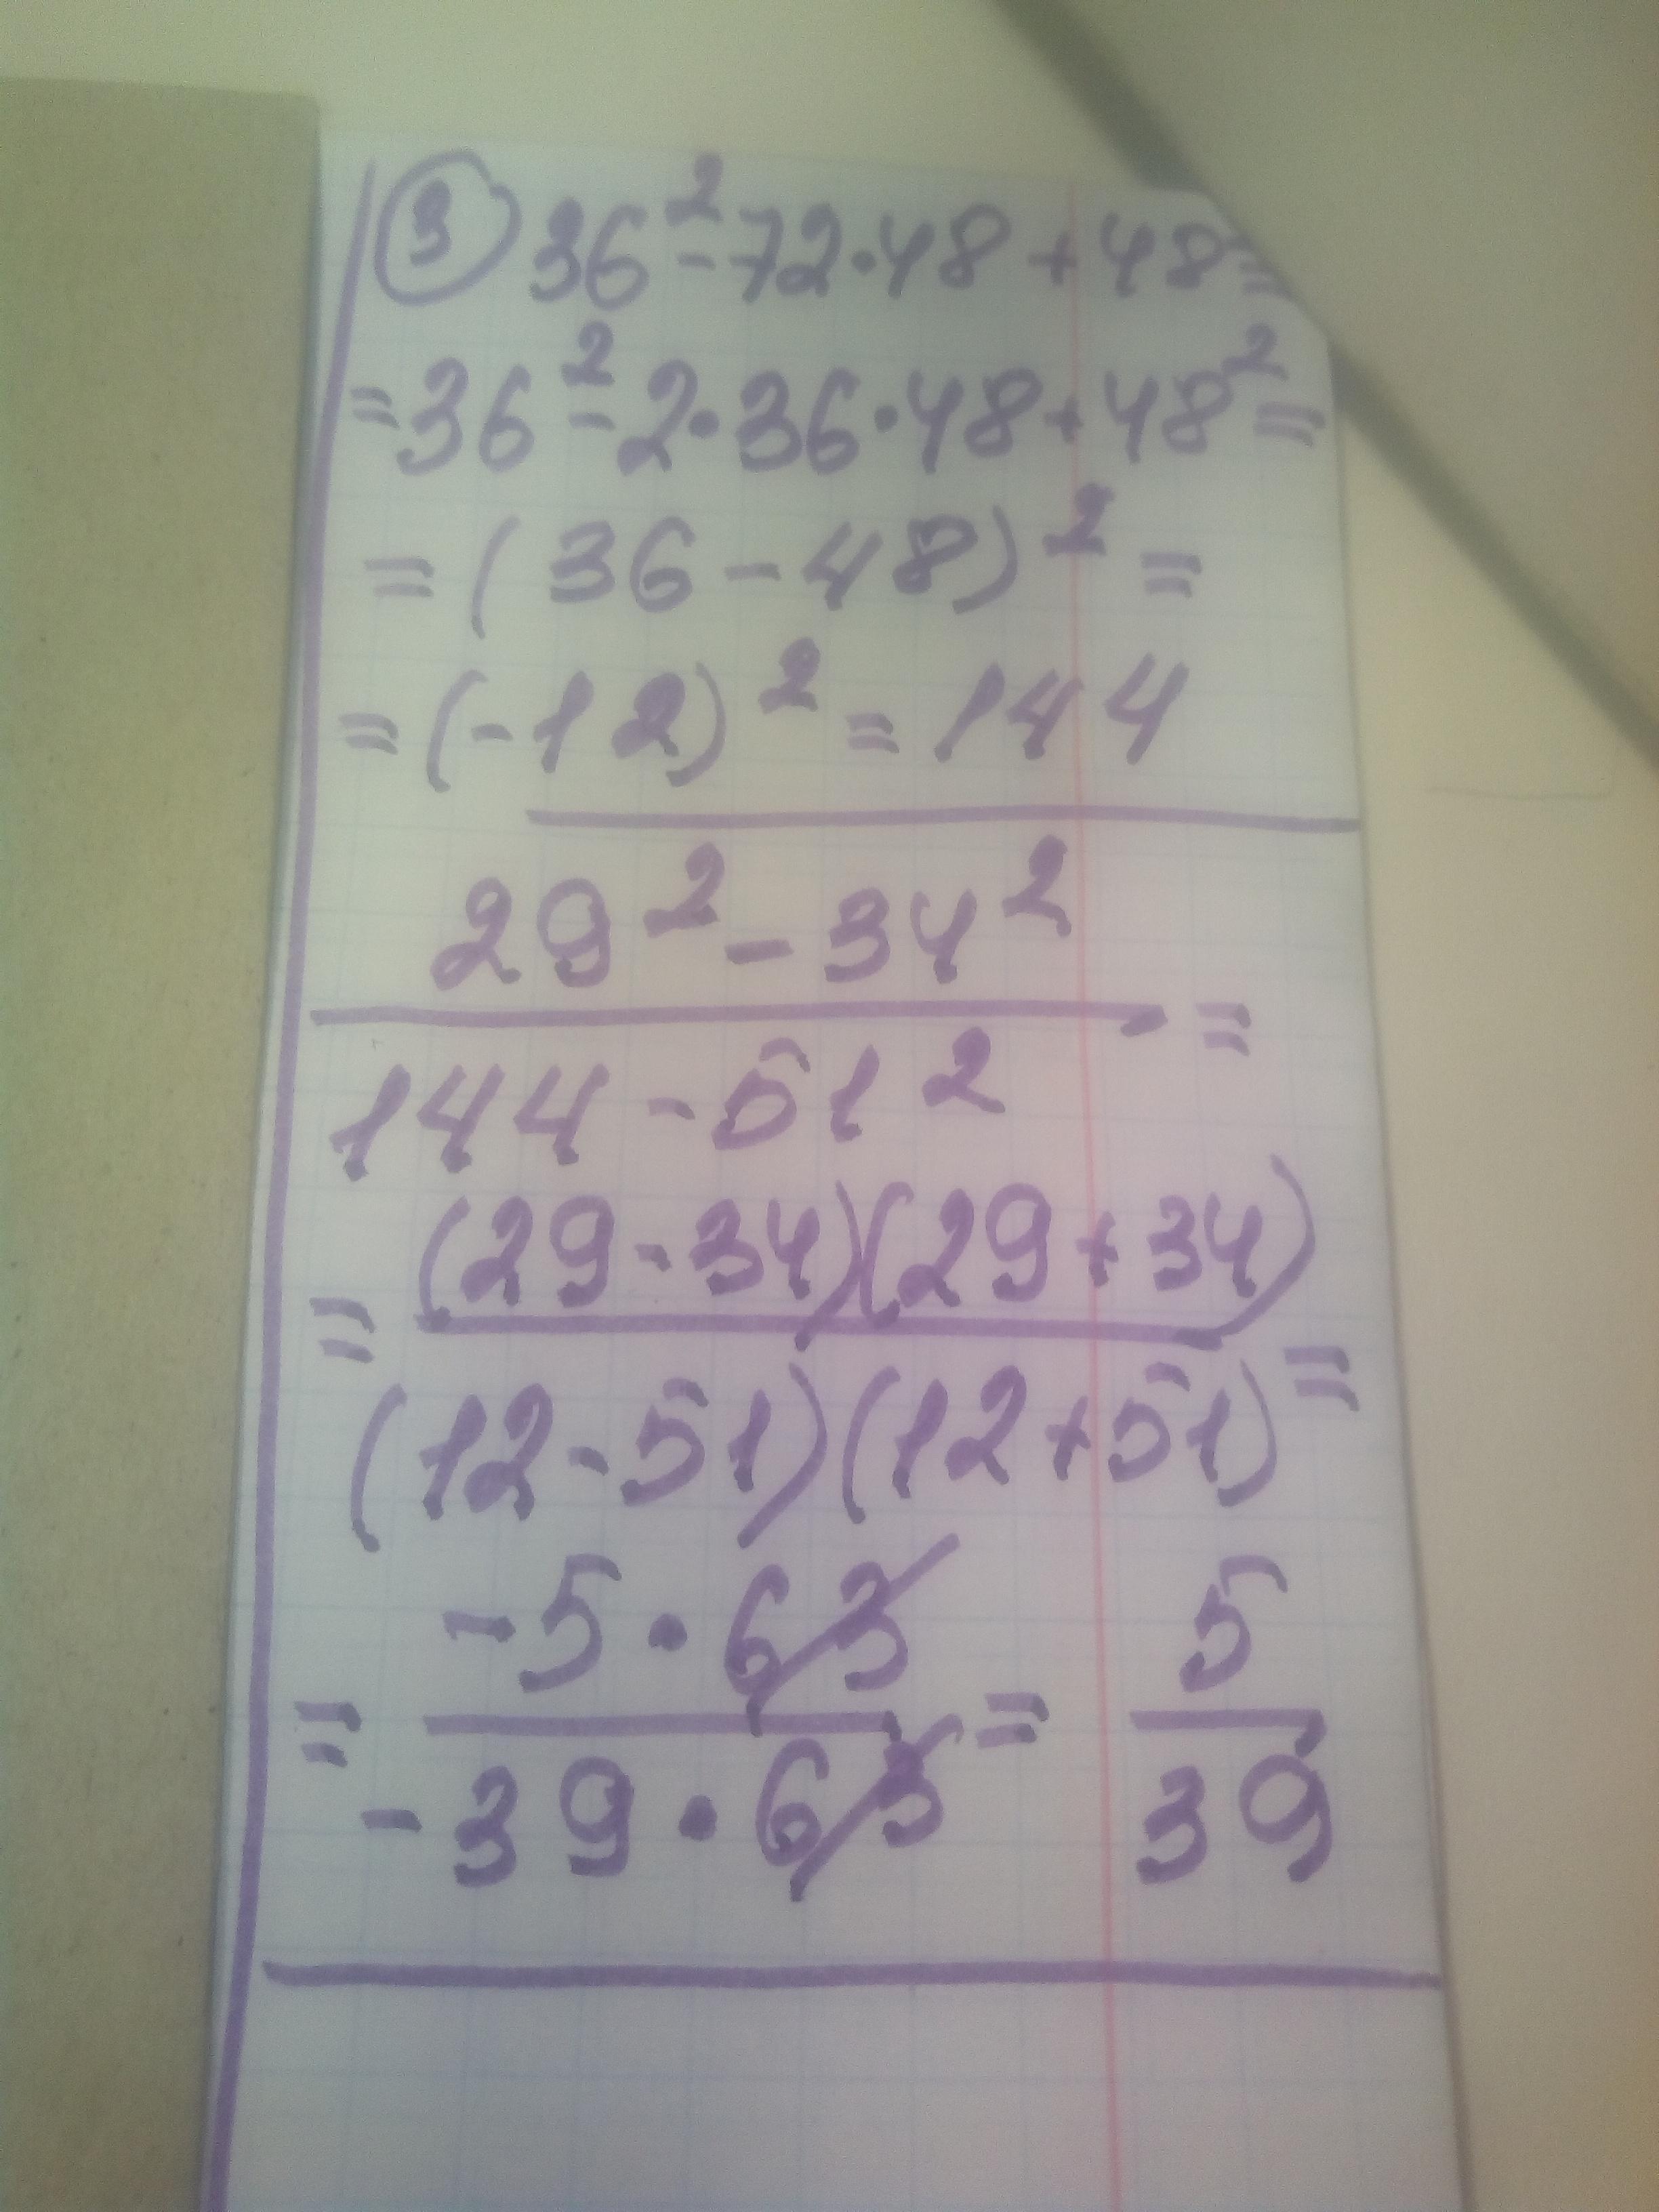 ③ 36² - 72 · 48 + 48 =
= 36² - 2 · 36 · 48 + 48² =
= (36 - 48)² =
= (-12)² = 144
29² - 34²
=
144 - 51²
(29 - 34)(29 + 34)
= =
(12 - 51)(12 + 51)
-5 · 63 5
= =
-39 · 63 39